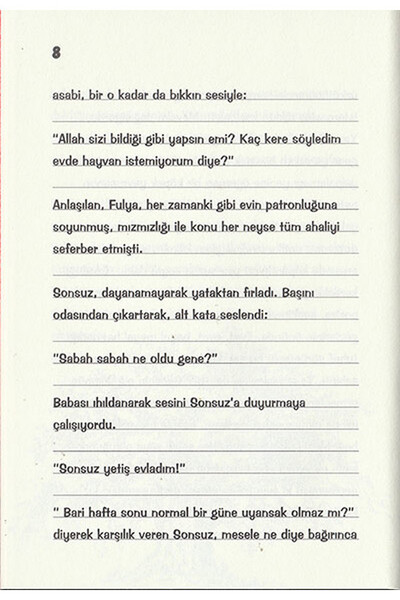 8
asabi, bir o kadar da bıkkın sesiyle:
"Allah sizi bildiği gibi yapsın emi? Kaç kere söyledim
evde hayvan istemiyorum diye?"
Anlaşılan, Fulya, her zamanki gibi evin patronluğuna
soyunmuş, mızmızlığı ile konu her neyse tüm ahaliyi
seferber etmişti.
Sonsuz, dayanamayarak yataktan fırladı. Başını
odasından çıkartarak, alt kata seslendi:
"Sabah sabah ne oldu gene?"
Babası ıhıldanarak sesini Sonsuz'a duyurmaya
çalışıyordu.
"Sonsuz yetiş evladım!"
" Bari hafta sonu normal bir güne uyansak olmaz mı?"
diyerek karşılık veren Sonsuz, mesele ne diye bağırınca